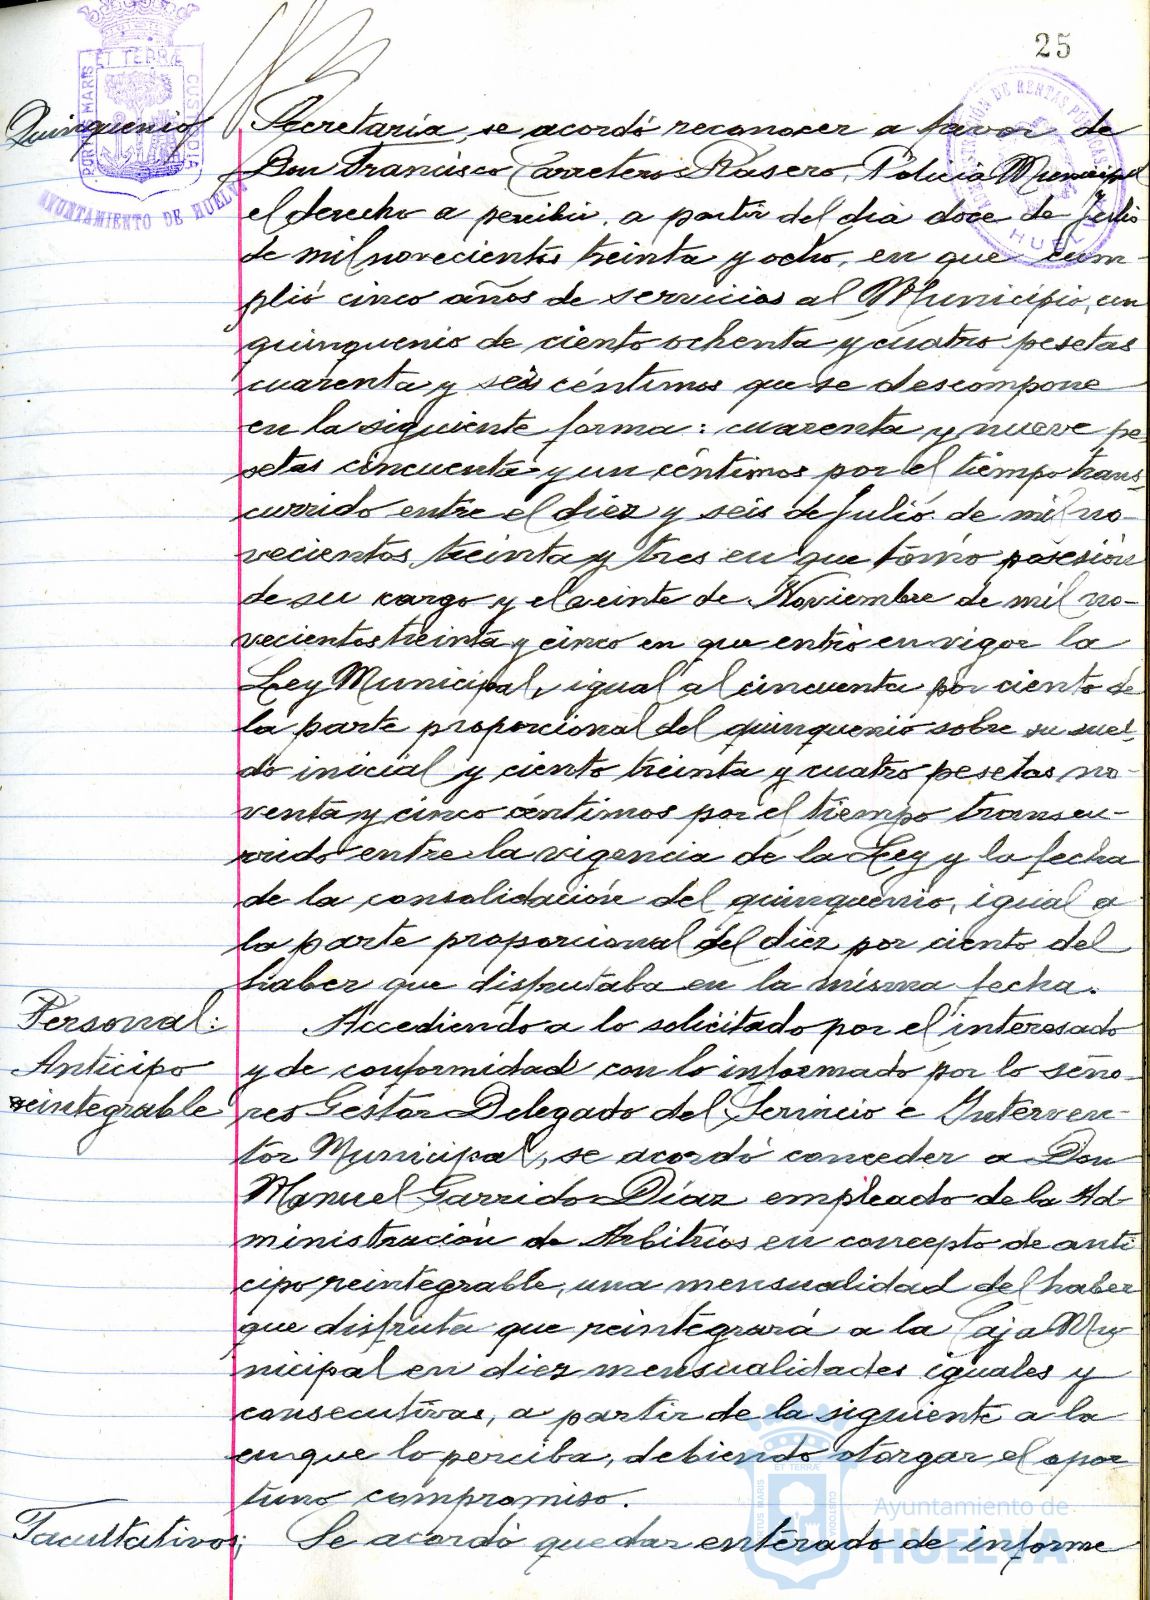 25
Quinquenio
Secretaria, se acordó reconocer a favor de
Don Francisco Carretero Rasero, Policia Municipal
el derecho a percibir, a partir del dia doce de Julio
de mil novecientos treinta y ocho, en que cum-
plió cinco años de servicios al Municipio, un
quinquenio de ciento ochenta y cuatro pesetas
cuarenta y seis céntimos que se descompone
en la siguiente forma: cuarenta y nueve pe-
setas cincuenta y un céntimos por el tiempo trans-
currido entre el diez y seis de Julio de mil no-
vecientos treinta y tres en que tomó posesión
de su cargo y el veinte de Noviembre de mil no-
vecientos treinta y cinco en que entró en vigor la
Ley Municipal, igual al cincuenta por ciento de
la parte proporcional del quinquenio sobre su suel-
do inicial y ciento treinta y cuatro pesetas no-
venta y cinco céntimos por el tiempo transcu-
rrido entre la vigencia de la Ley y la fecha
de la consolidación del quinquenio, igual a
la parte proporcional del diez por ciento del
haber que disfrutaba en la misma fecha.
Personal:
Anticipo
reintegrable
Accediendo a lo solicitado por el interesado
y de conformidad con lo informado por lo seño-
res Gestor Delegado del Servicio e Interven-
tor Municipal, se acordó conceder a Don
Manuel Garrido Díaz empleado de la Ad-
ministración de Arbitrios en concepto de anti
cipo reintegrable, una mensualidad del haber
que disfruta que reintegrará a la Caja Mu
nicipal en diez mensualidades iguales y
consecutivas, a partir de la siguiente a la
en que lo perciba, debiendo otorgar el opor
tuno compromiso.
Facultativos;
Se acordó quedar enterado de informe
PORTUS MARIS ET TERRÆ CUSTODIA
AYUNTAMIENTO DE HUELVA
HUELVA
Ayuntamiento de
HUELVA